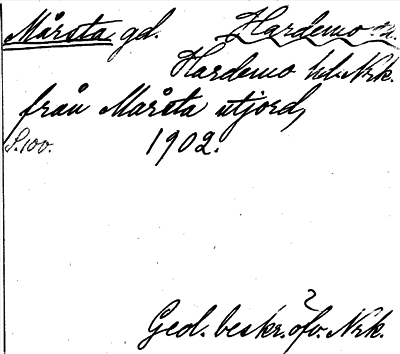 Mårsta gd. Hardemo sn.
Hardemo hd. Nrk.
från Mårsta utjord,
S. 100. 1902.
?
Geol. beskr. öfv. Nrk.